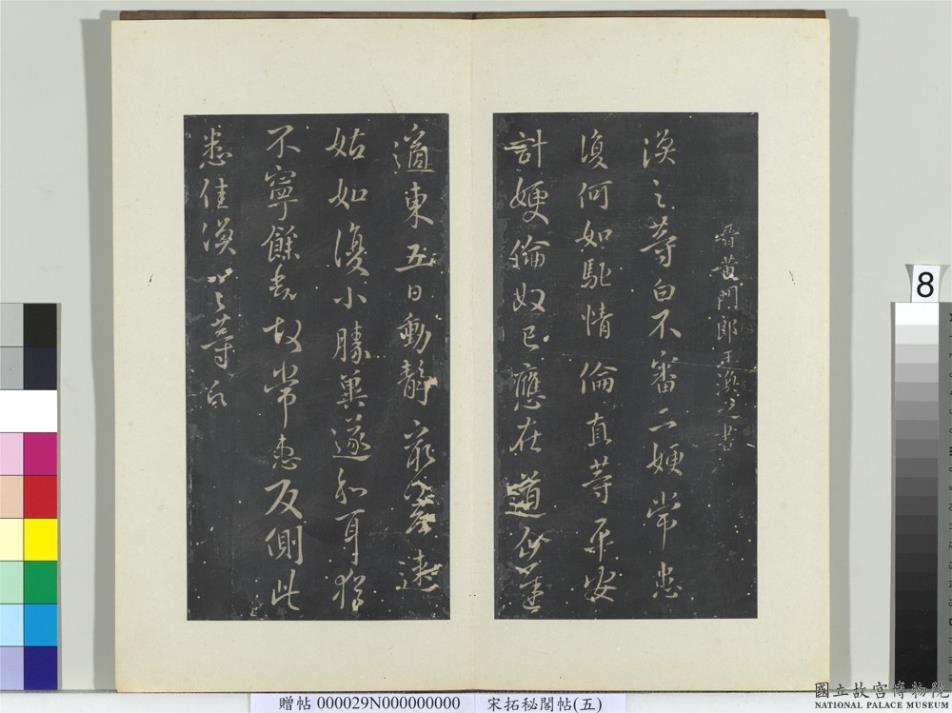 晉黃門郎王渙之書
渙之等白不審二嫂常患
復何如馳情倫直等平安
計嫂倫奴已應在道
適東五日動靜
姑如復小勝冀遂和耳獨
不寧餘親故常患反側此
悉佳渙之等白
8
贈帖 000029N000000000 宋拓秘閣帖(五)
國立故宮博物院
NATIONAL PALACE MUSEUM